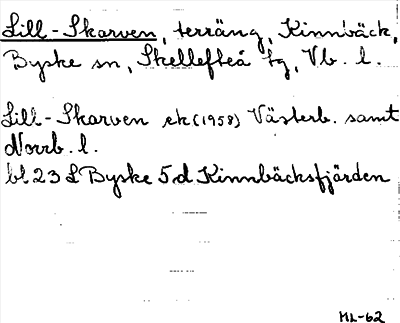 Lill-Skarven, terräng, Kinnbäck,
Byske sn, Skellefteå tg, Vb. l.
Lill-Skarven ek (1958) Västerb. samt
Norrb. l.
bl 23 L Byske 5 d Kinnbäcksfjärden
ML-62